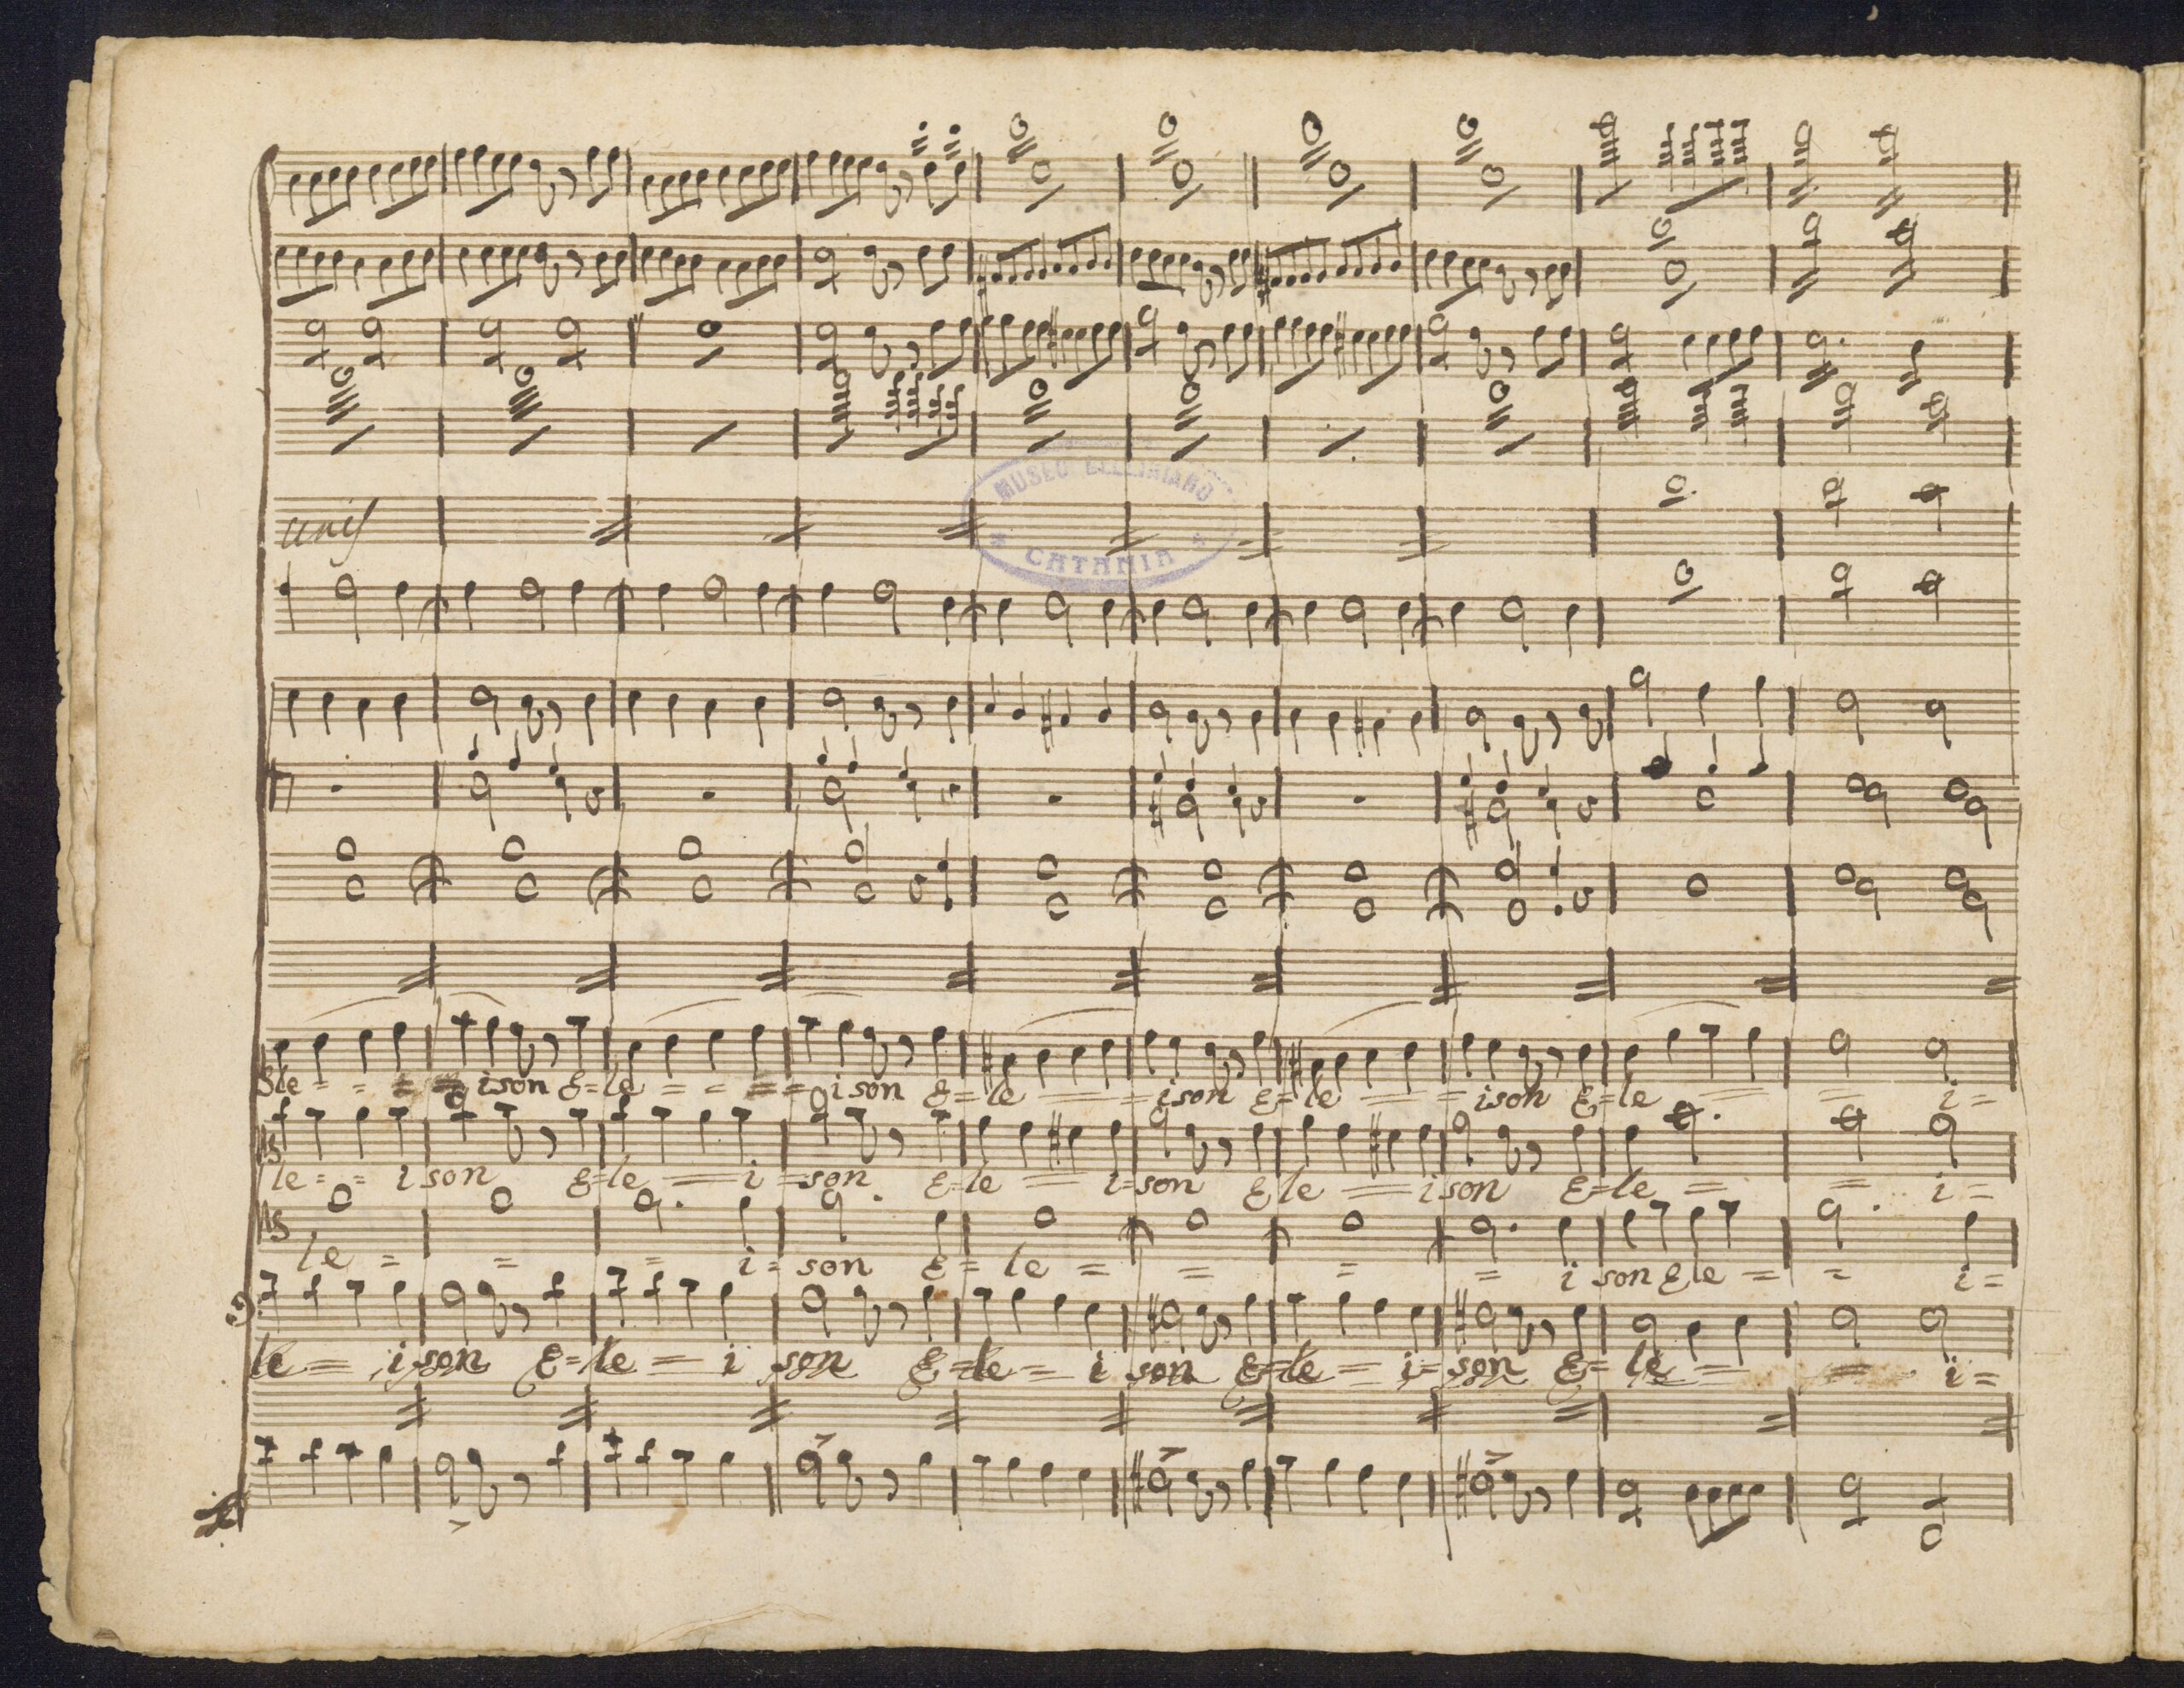 unis
MUSEO BELLINIANO
* CATANIA *
le = = = = ison E = le = = = = ison E = le = = = ison E = le = = = ison E = le = = = i =
le = = i son E = le = i = son E = le = i = son E le = i son E = le = = i =
le = = = i = son E = le = = = = i son E le = = i =
le = i son E = le = i son E = le = i son E = le = i = son E = le = = i =